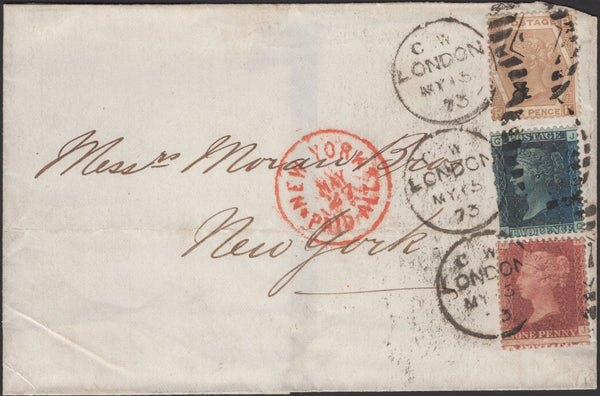 POSTAGE
PENCE
C W
LONDON
MY 15
73
C POSTAGE J
C W
LONDON
MY 15
73
Messrs Moran Bros
NEW YORK
MAY
27
PAID ALL
TWO PENCE
New York
C W
LONDON
MY 15
73
ONE PENNY
J